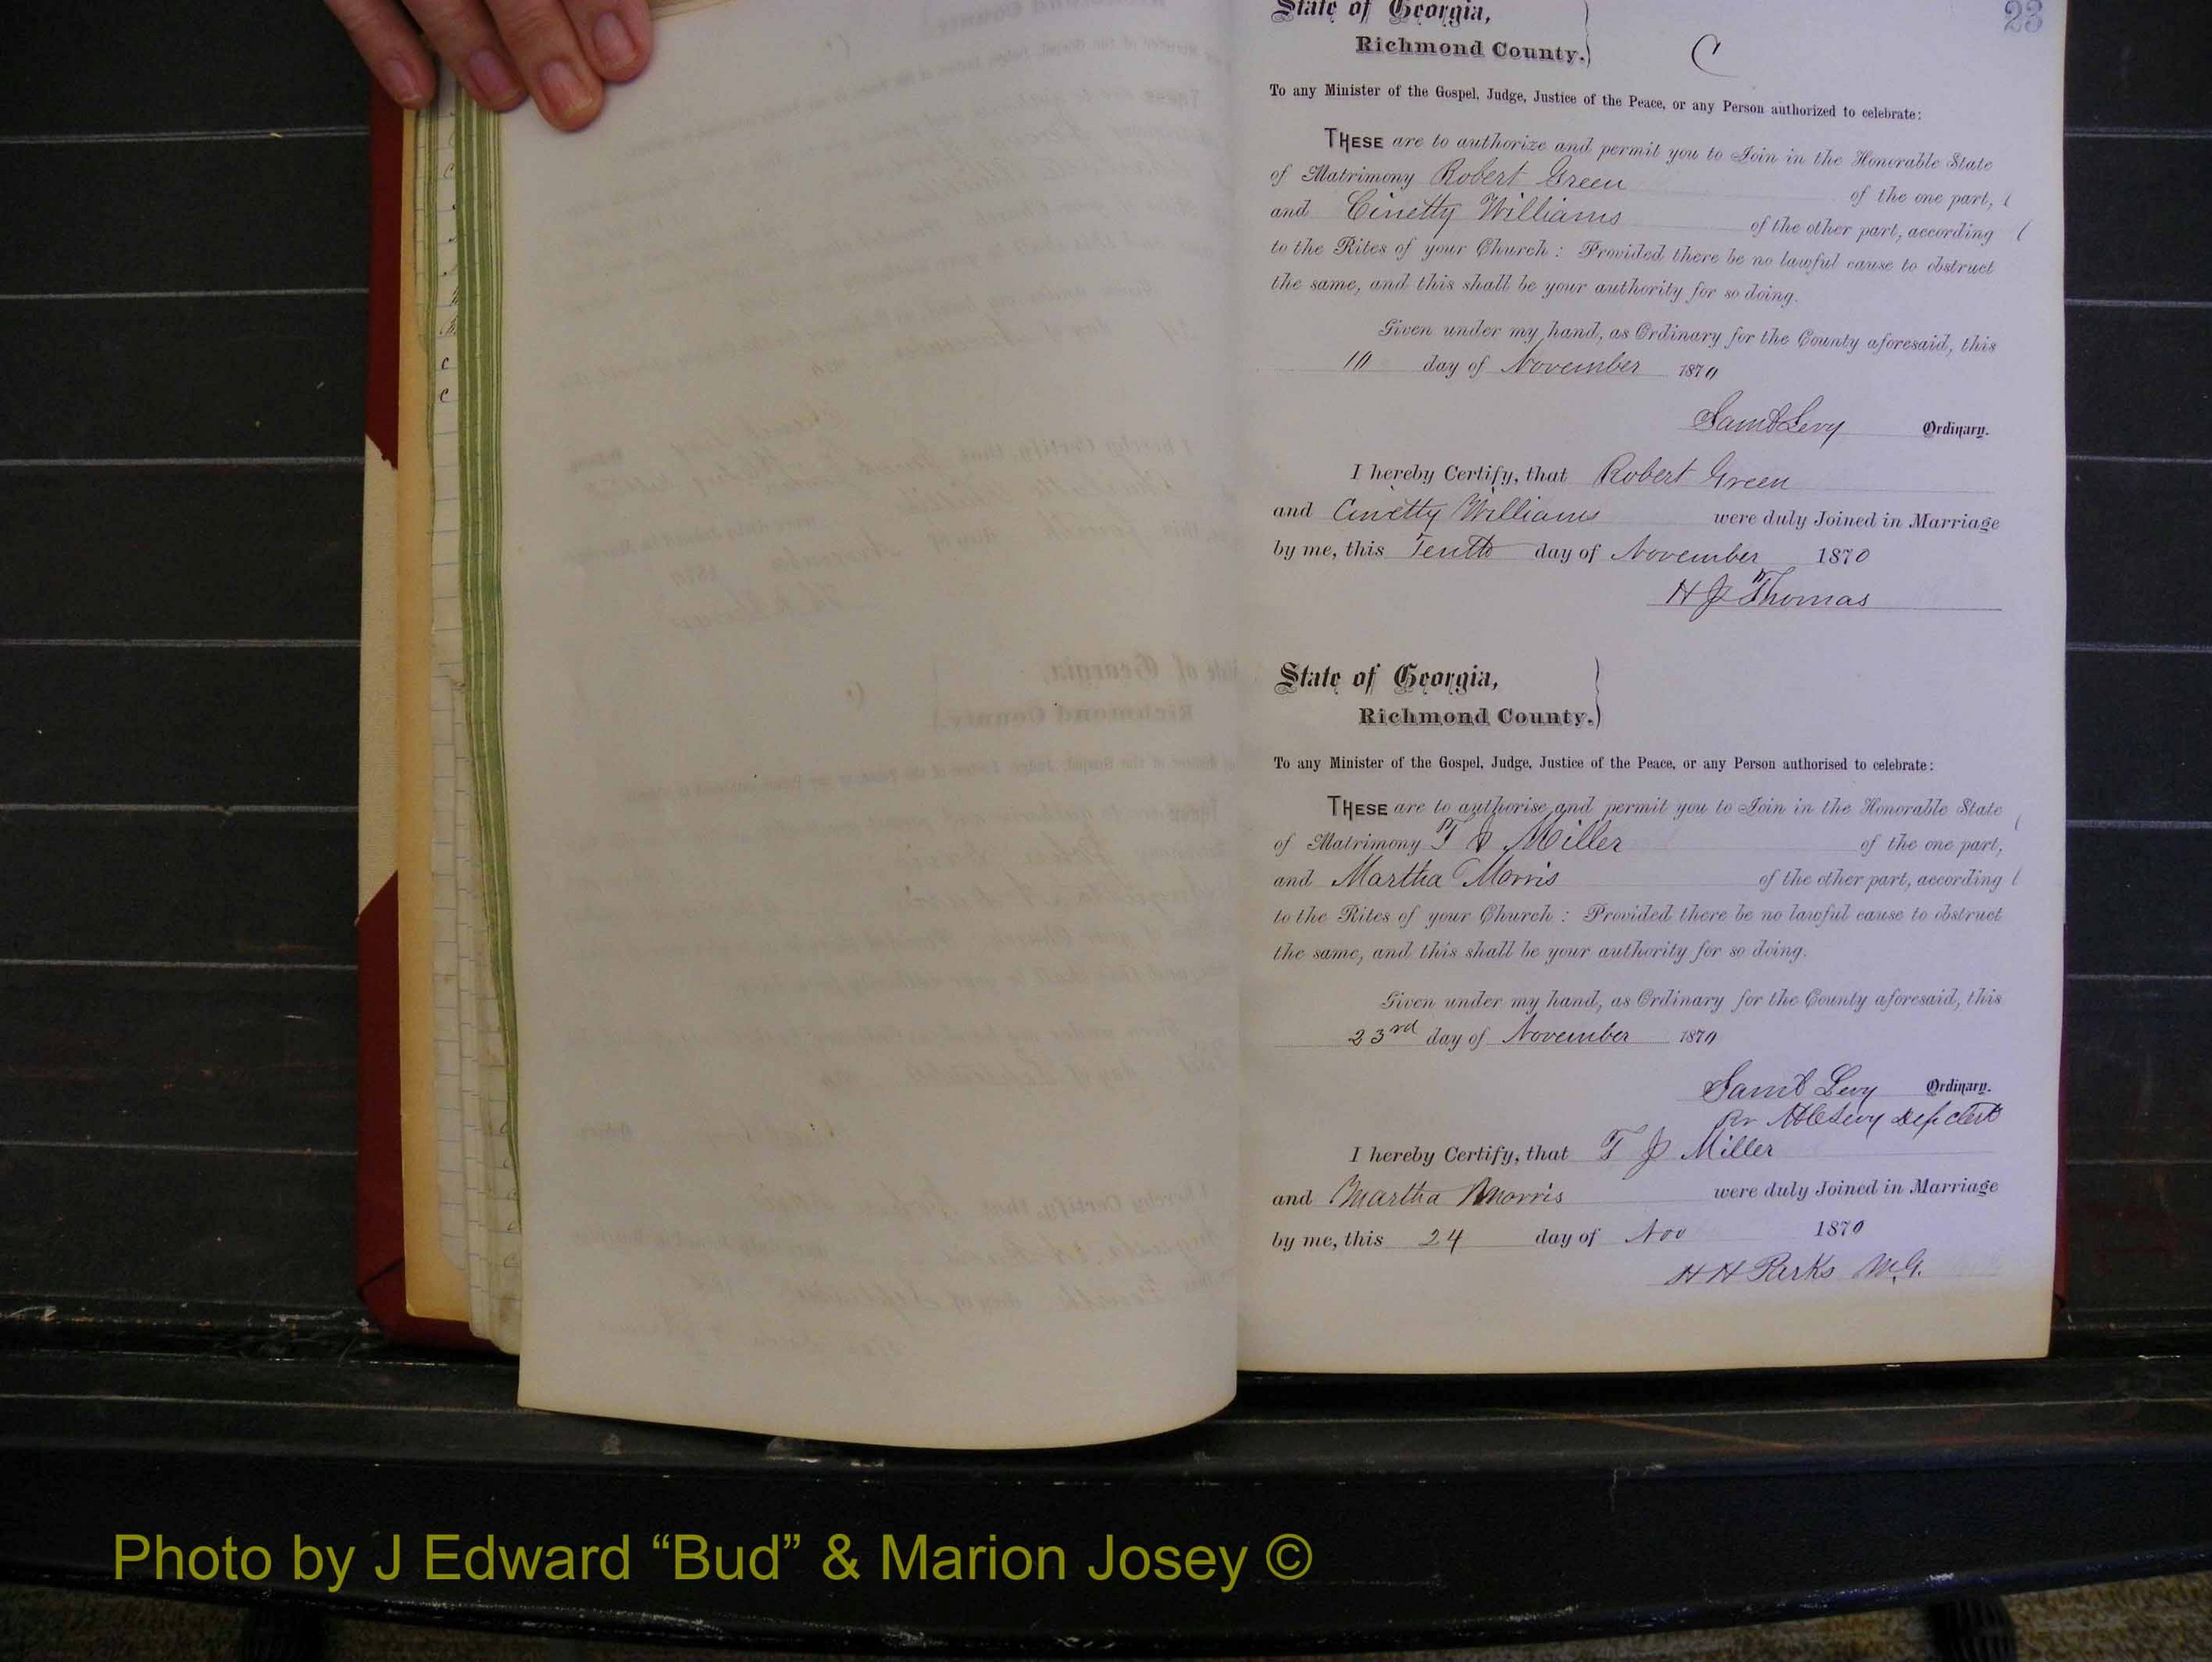 23
State of Georgia,
Richmond County.
C
To any Minister of the Gospel, Judge, Justice of the Peace, or any Person authorized to celebrate:
THESE are to authorize and permit you to Join in the Honorable State
of Matrimony Robert Green of the one part,
and Cinetty Williams of the other part, according
to the Rites of your Church: Provided there be no lawful cause to obstruct
the same, and this shall be your authority for so doing.
Given under my hand, as Ordinary for the County aforesaid, this
10 day of November 1870
Saml Levy Ordinary.
I hereby Certify, that Robert Green
and Cinetty Williams were duly Joined in Marriage
by me, this Tenth day of November 1870
H J Thomas
State of Georgia,
Richmond County.
To any Minister of the Gospel, Judge, Justice of the Peace, or any Person authorised to celebrate:
THESE are to authorise and permit you to Join in the Honorable State
of Matrimony T J Miller of the one part,
and Martha Morris of the other part, according
to the Rites of your Church: Provided there be no lawful cause to obstruct
the same, and this shall be your authority for so doing.
Given under my hand, as Ordinary for the County aforesaid, this
23rd day of November 1870
Saml Levy Ordinary.
Levy Dep clerk
I hereby Certify, that T J Miller
and Martha Morris were duly Joined in Marriage
by me, this 24 day of Nov 1870
H H Parks M.G.
Photo by J Edward “Bud” & Marion Josey ©